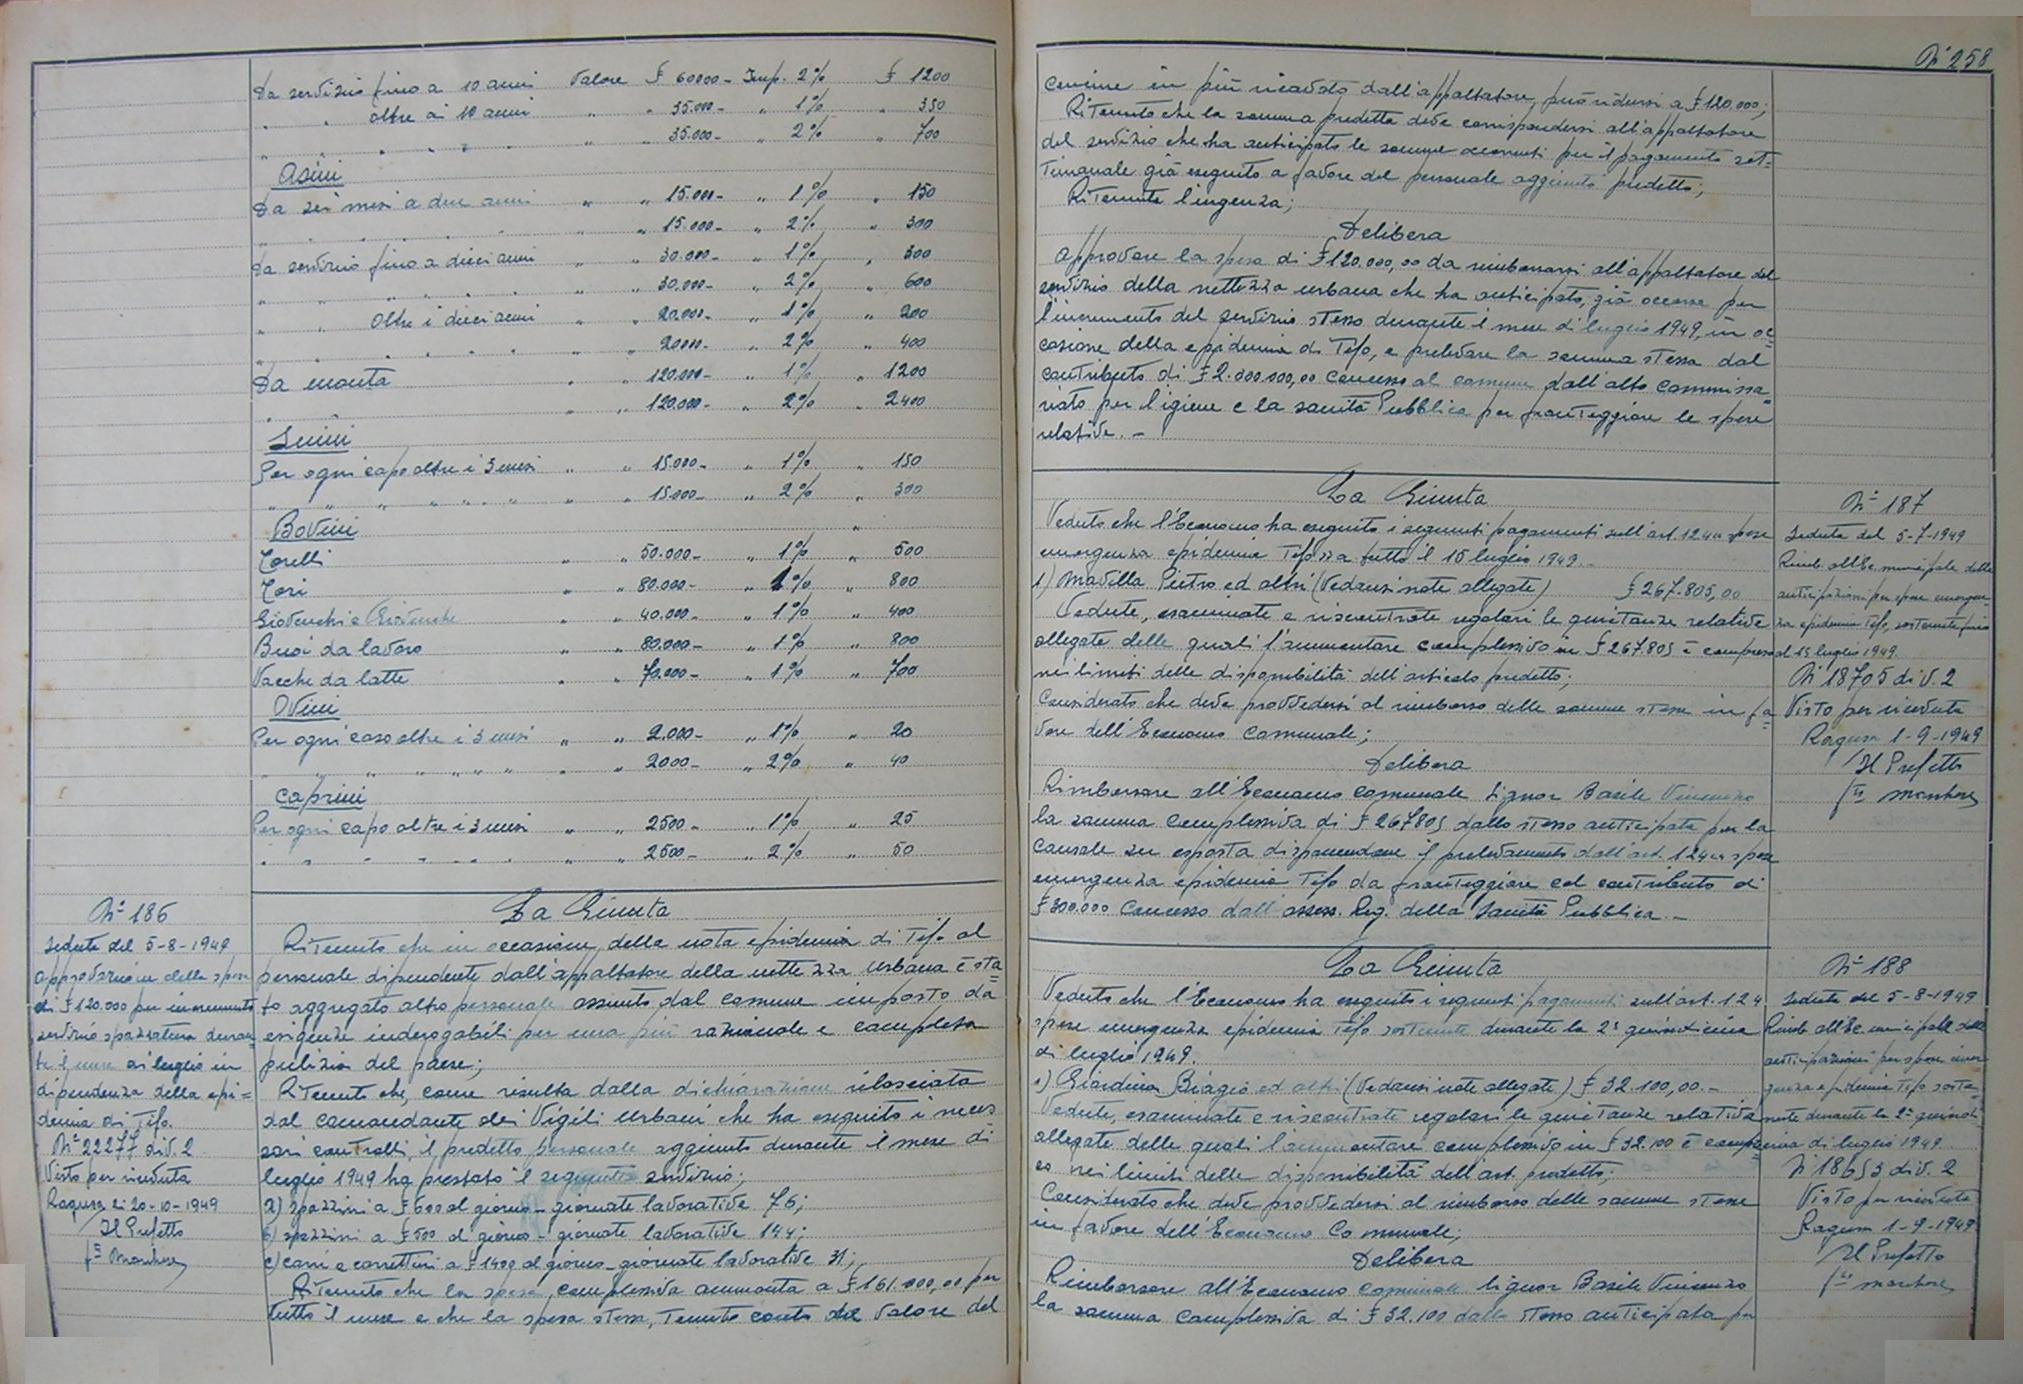 Da servizio fino a 10 anni Valore £ 60000- Imp. 2% £ 1200
" " oltre ai 10 anni " " 35.000- " 1% " 350
" " " " " " " 35.000- " 2% " 700
Asini
Da sei mesi a due anni " " 15.000- " 1% " 150
" " " " " " " 15.000- " 2% " 300
Da servizio fino a dieci anni " " 30.000- " 1% " 300
" " " " " " " 30.000- " 2% " 600
" " Oltre i dieci anni " " 20.000- " 1% " 200
" " " " " " " 20000- " 2% " 400
Da monta " " 120.000- " 1% " 1200
" " " 120.000- " 2% " 2400
Suini
Per ogni capo oltre i 3 mesi " " 15.000- " 1% " 150
" " " " " " " " 15.000- " 2% " 300
Bovini
Torelli " " 50.000- " 1% " 500
Tori " " 80.000- " 1% " 800
Giovenchi e Giovenche " " 40.000- " 1% " 400
Buoi da lavoro " " 80.000- " 1% " 800
Vacche da latte " " 70.000- " 1% " 700
Ovini
Per ogni caso oltre i 3 mesi " " 2.000- " 1% " 20
" " " " " " " " 2000- " 2% " 40
Caprini
Per ogni capo oltre i 3 mesi " " 2500- " 1% " 25
" " " " " " " " 2500- " 2% " 50
N° 186
Seduta del 5-8-1949
Approvazione della spesa
di £ 120.000 per incremento
servizio spazzatura duran=
te il mese di luglio in
dipendenza della epi=
demia di Tifo.
N° 22277 div. 2
Visto per ricevuta
Ragusa li 20-10-1949
Il Prefetto
La Giunta
Ritenuto che in occasione della nota epidemia di Tifo al
personale dipendente dall'appaltatore della nettezza urbana è sta=
to aggregato altro personale assunto dal comune imposto da
esigenze inderogabili per una più razionale e completa
pulizia del paese;
Ritenuto che, come risulta dalla dichiarazione rilasciata
dal comandante dei Vigili Urbani che ha eseguito i neces
sari controlli, il predetto personale aggiunto durante il mese di
luglio 1949 ha prestato il seguente servizio:
a) spazzini a £ 600 al giorno - giornate lavorative 76;
b) spazzini a £ 500 al giorno - giornate lavorative 144;
c) carri e carrettieri a £ 1400 al giorno - giornate lavorative 31;
Ritenuto che la spesa complessiva ammonta a £ 161.000,00 per
tutto il mese e che la spesa stessa, tenuto conto del valore del
N° 258
concime in più ricavato dall'appaltatore, può ridursi a £ 120.000;
Ritenuto che la somma predetta deve corrispondersi all'appaltatore
del servizio che ha anticipato le somme occorrenti per il pagamento set=
timanale già eseguito a favore del personale aggiunto predetto;
Ritenuta l'urgenza;
Delibera
Approvare la spesa di £ 120.000,00 da rimborsarsi all'appaltatore del
servizio della nettezza urbana che ha anticipato, già occorse per
l'incremento del servizio stesso durante il mese di luglio 1949, in oc=
casione della epidemia di Tifo, e prelevare la somma stessa dal
contributo di £ 2.000.000,00 concesso al comune dall'alto commissa=
riato per l'igiene e la sanità Pubblica per fronteggiare le spese
relative. -
La Giunta
Veduto che l'Economo ha eseguito i seguenti pagamenti sull'art. 124 spese
emergenza epidemia Tifo a tutto il 15 luglio 1949. -
1) Mavilla Pietro ed altri (Vedansi note allegate) £ 267.805,00
Vedute, esaminate e riscontrate regolari le quietanze relative
allegate delle quali l'ammontare complessivo in £ 267.805 è compreso
nei limiti delle disponibilità dell'articolo predetto;
Considerato che deve provvedersi al rimborso delle somme stesse in fa=
vore dell'Economo Comunale;
Delibera
Rimborsare all'Economo Comunale Signor Basile Vincenzo
la somma complessiva di £ 267805 dallo stesso anticipata per la
causale su esposta disponendone il prelevamento dall'art. 124 spese
emergenza epidemia Tifo da fronteggiare col contributo di
£ 300.000 concesso dall'assess. Reg. della Sanità Pubblica. -
N° 187
Seduta del 5-7-1949
Rimb. all'Ec. municipale delle
anticipazioni per spese emergen=
za epidemia Tifo, sostenute fino
al 15 luglio 1949.
N° 18705 div. 2
Visto per ricevuta
Ragusa 1-9-1949
Il Prefetto
La Giunta
Veduto che l'Economo ha eseguito i seguenti pagamenti sull'art. 124
spese emergenza epidemia Tifo sostenute durante la 2ª quindicina
di luglio 1949.
1) Giardina Biagio ed altri (Vedansi note allegate) £ 32.100,00. -
Vedute, esaminate e riscontrate regolari le quietanze relative
allegate delle quali l'ammontare complessivo in £ 32.100 è compre
so nei limiti delle disponibilità dell'art. predetto;
Considerato che deve provvedersi al rimborso delle somme stesse
in favore dell'Economo Comunale;
Delibera
Rimborsare all'Economo Comunale Signor Basile Vincenzo
la somma complessiva di £ 32.100 dallo stesso anticipata per
N° 188
Seduta del 5-8-1949
Rimb. all'Ec. municipale delle
anticipazioni per spese emer=
genza epidemia Tifo soste=
nute durante la 2ª quindi=
cina di luglio 1949.
N° 18653 div. 2
Visto per ricevuta
Ragusa 1-9-1949
Il Prefetto